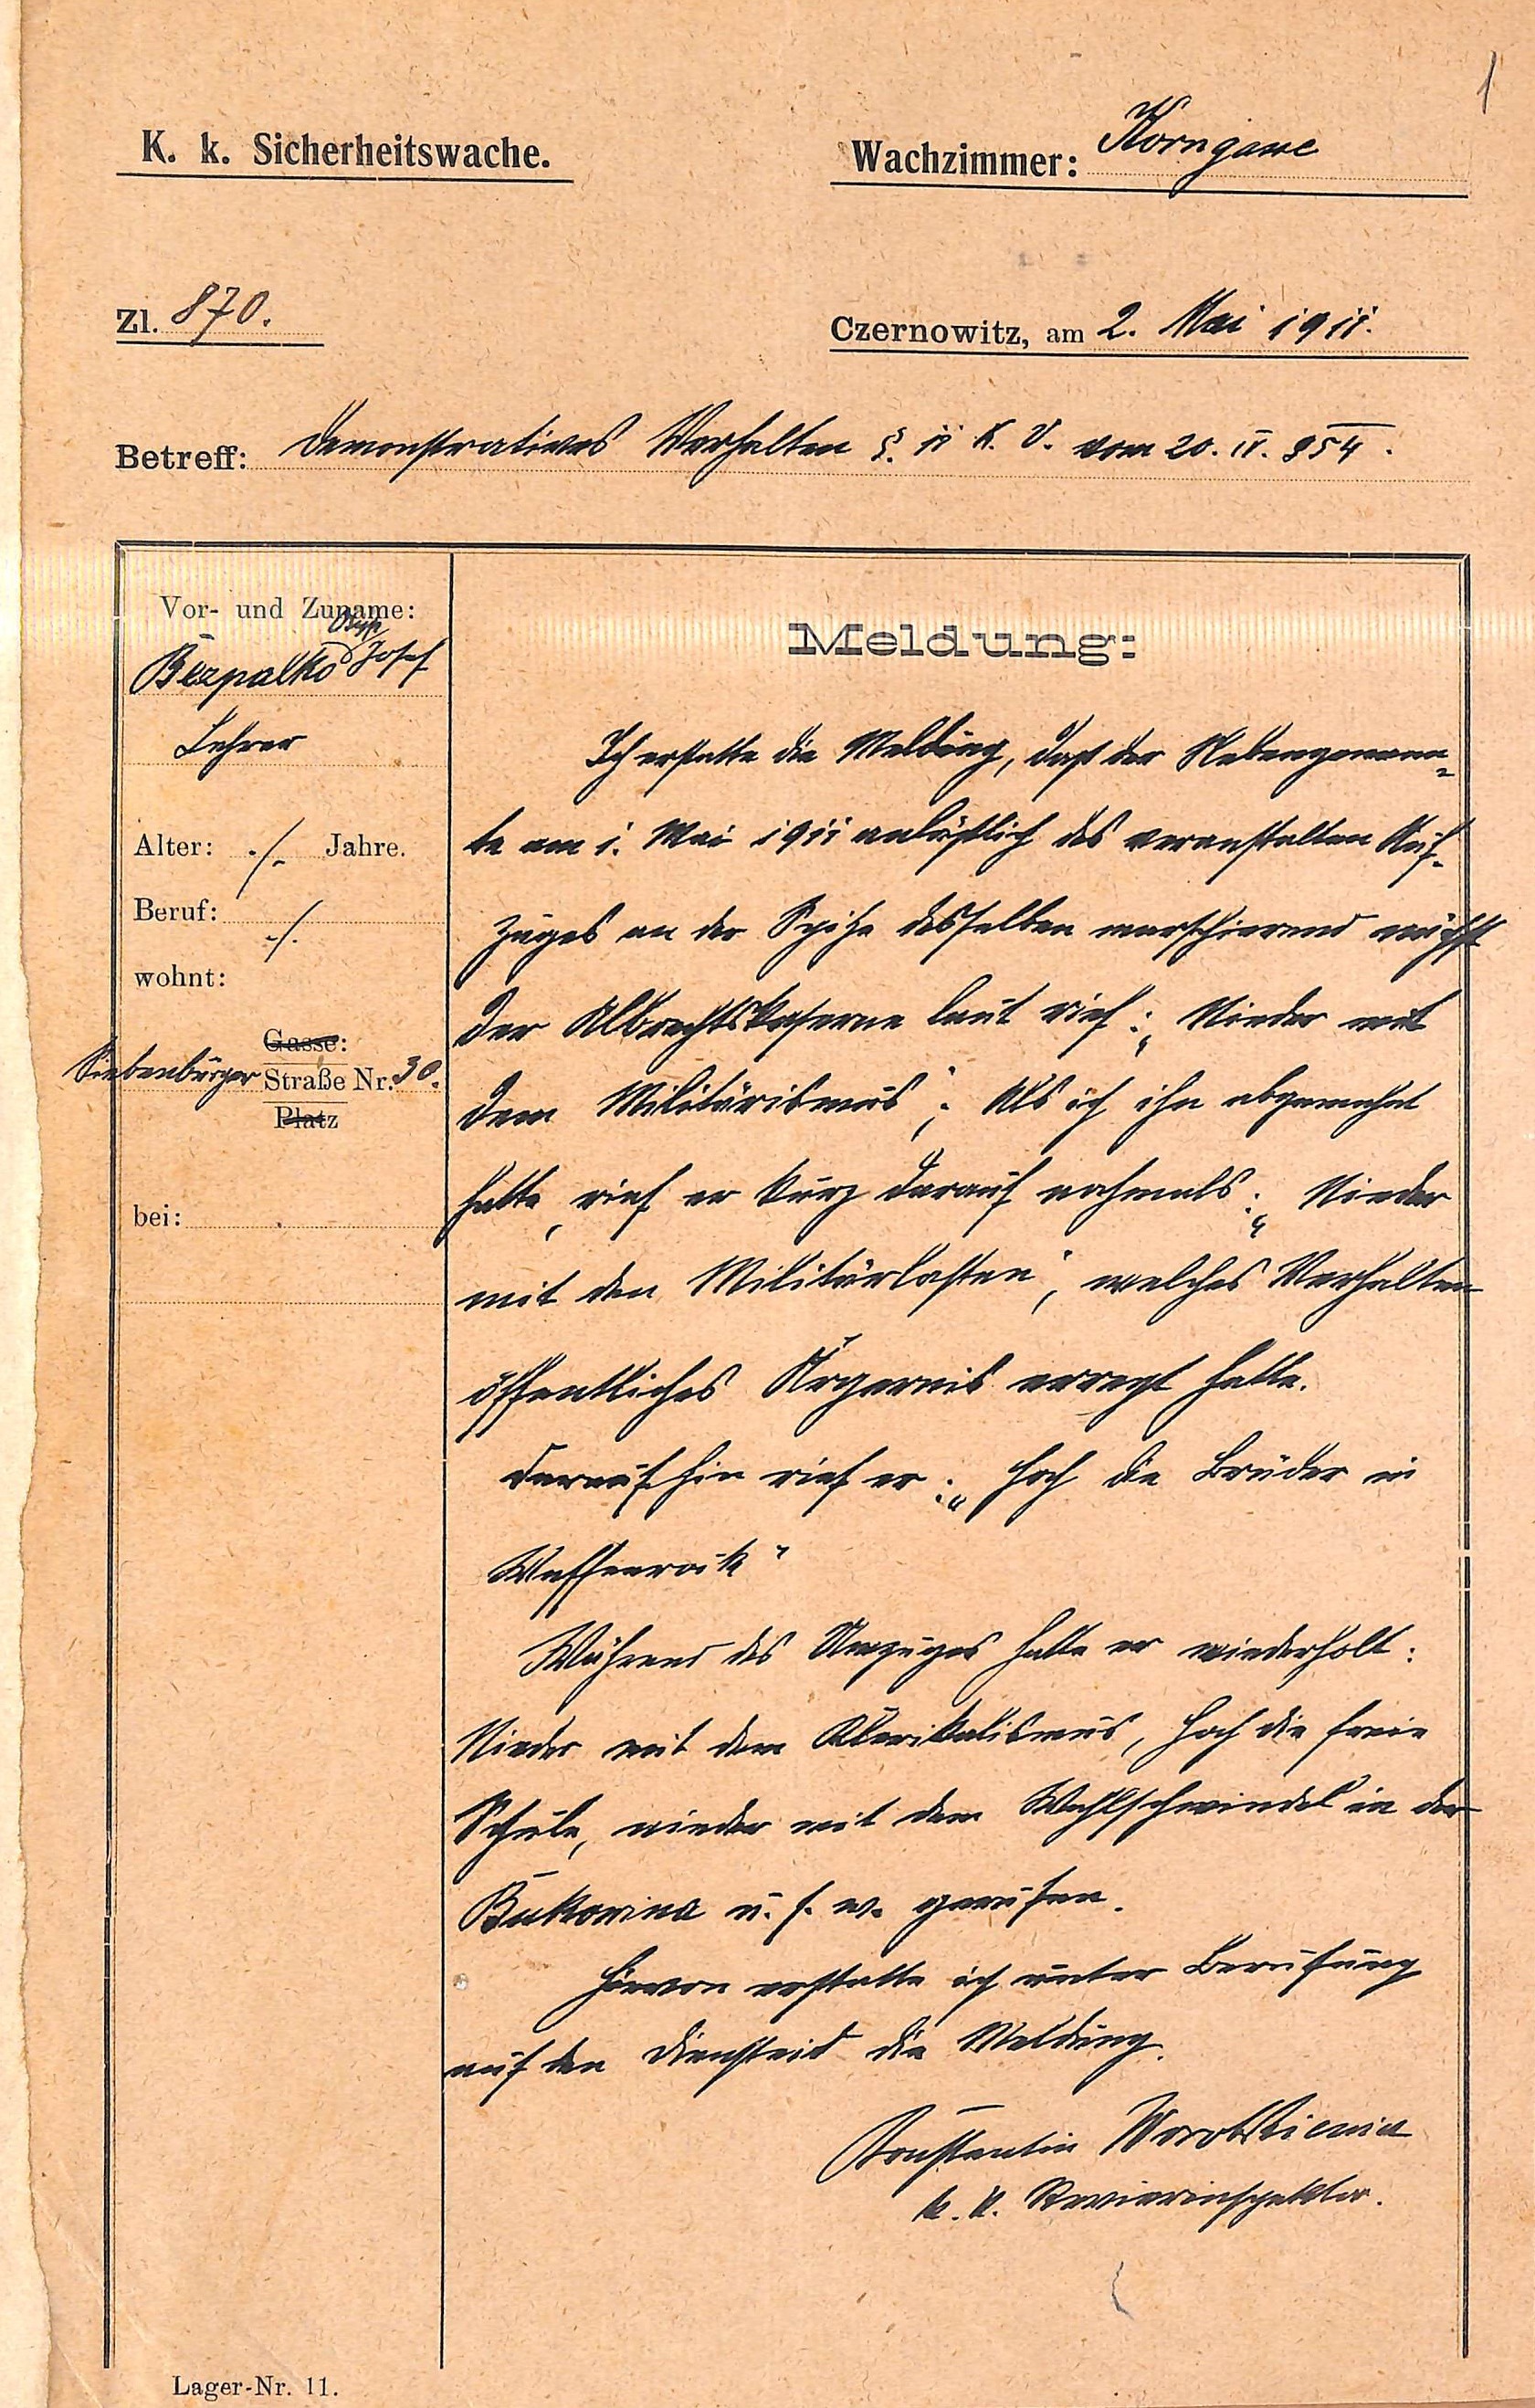 1
K. k. Sicherheitswache.
Wachzimmer: Korngasse
Zl. 870.
Czernowitz, am 2. Mai 1911.
Betreff: Demonstratives Verhalten §. 11 K. V. vom 20. IV. 854.
Vor- und Zuname:
Osyp
Bezpalko Josef
Lehrer
Alter: ./. Jahre.
Beruf: ./.
wohnt:
Gasse:
Siebenbürger Straße Nr. 30.
Platz
bei:
Meldung:
Ich erstatte die Meldung, daß der Nebengenann=
te am 1. Mai 1911 anläßlich des veranstalten Auf-
zuges an der Spitze desselben marschierend
der Albrechtskaserne laut rief: „Nieder mit
dem Militärismus“; Als ich ihn abgemahnt
hatte, rief er kurz darauf nochmals: „Nieder
mit den Militärlasten“, welches Verhalten
öffentliches Ärgernis erregt hatte.
Daraufhin rief er: „Hoch die Brüder in
Waffenrock“
Während des Umzuges hatte er wiederholt:
Nieder mit dem Klerikalismus, hoch die freie
Schule, nieder mit dem Wahlschwindel in der
Bukowina u. s. w. gerufen.
Hievon erstatte ich unter Berufung
auf den Diensteid die Meldung.
Konstantin Worobkiewicz
k. k. Revierinspektor.
Lager-Nr. 11.